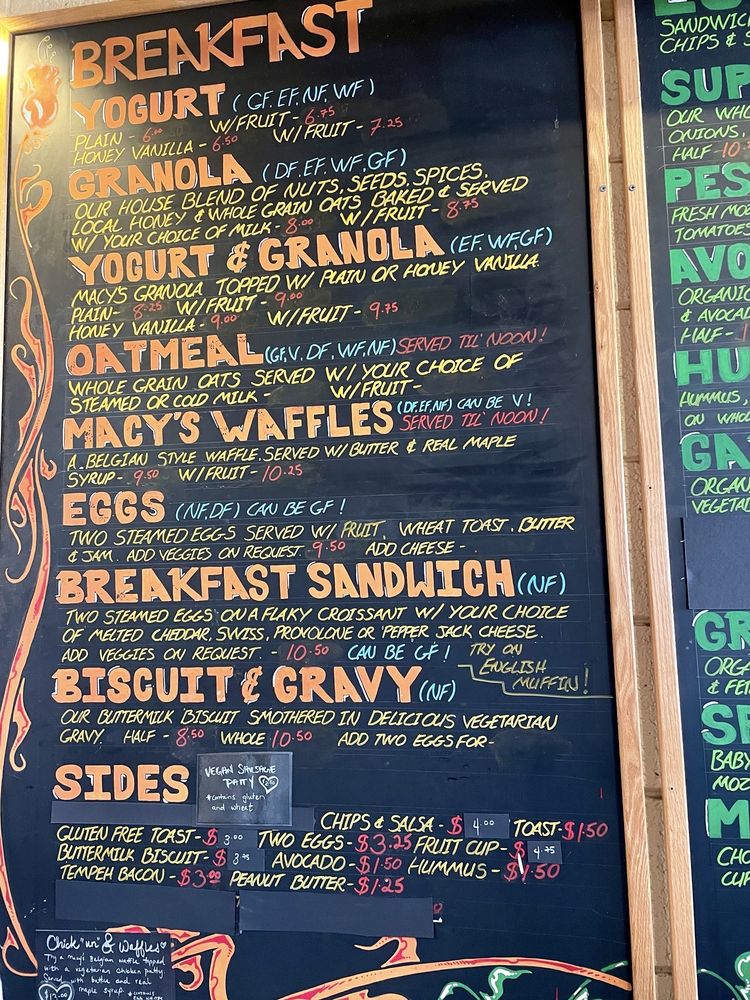 BREAKFAST
YOGURT (GF, EF, NF, WF)
PLAIN - 6.00 W/FRUIT - 6.75
HONEY VANILLA - 6.50 W/FRUIT - 7.25
GRANOLA (DF, EF, WF, GF)
OUR HOUSE BLEND OF NUTS, SEEDS, SPICES,
LOCAL HONEY & WHOLE GRAIN OATS BAKED & SERVED
W/ YOUR CHOICE OF MILK - 8.00 W/FRUIT - 8.75
YOGURT & GRANOLA (EF, WF, GF)
MACY'S GRANOLA TOPPED W/ PLAIN OR HONEY VANILLA
PLAIN - 8.25 W/FRUIT - 9.00
HONEY VANILLA - 9.00 W/FRUIT - 9.75
OATMEAL (GF, V, DF, WF, NF) SERVED TIL' NOON!
WHOLE GRAIN OATS SERVED W/ YOUR CHOICE OF
STEAMED OR COLD MILK - W/FRUIT -
MACY'S WAFFLES (DF, EF, NF) CAN BE V!
SERVED TIL' NOON!
A BELGIAN STYLE WAFFLE SERVED W/ BUTTER & REAL MAPLE
SYRUP - 9.50 W/FRUIT - 10.25
EGGS (NF, DF) CAN BE GF!
TWO STEAMED EGGS SERVED W/ FRUIT, WHEAT TOAST, BUTTER
& JAM. ADD VEGGIES ON REQUEST 9.50 ADD CHEESE -
BREAKFAST SANDWICH (NF)
TWO STEAMED EGGS ON A FLAKY CROISSANT W/ YOUR CHOICE
OF MELTED CHEDDAR, SWISS, PROVOLONE OR PEPPER JACK CHEESE.
ADD VEGGIES ON REQUEST. - 10.50 CAN BE GF!
TRY ON
ENGLISH
MUFFIN!
BISCUIT & GRAVY (NF)
OUR BUTTERMILK BISCUIT SMOTHERED IN DELICIOUS VEGETARIAN
GRAVY HALF - 8.50 WHOLE 10.50 ADD TWO EGGS FOR -
SIDES
VEGAN SAUSAGE
PATTY
*contains gluten
and wheat
CHIPS & SALSA - $ 4.00 TOAST - $1.50
GLUTEN FREE TOAST - $ 3.00 TWO EGGS - $3.25 FRUIT CUP - $ 4.75
BUTTERMILK BISCUIT - $ 3.75 AVOCADO - $1.50 HUMMUS - $1.50
TEMPEH BACON - $3.00 PEANUT BUTTER - $1.25
Chick "un" & Waffles
Try a Macy's Belgian waffle topped
with a vegetarian chicken patty.
Served with butter and real
maple syrup.
$12.00
SANDWIC
CHIPS &
SUP
OUR WH
ONIONS,
HALF - 10
PES
FRESH MO
TOMATOES
AVO
ORGANIC
& AVOCA
HALF - 1
HU
HUMMUS,
ON WHO
GA
ORGAN
VEGETA
GR
ORGA
& FET
SP
BABY
MOZ
M
CHO
CUP